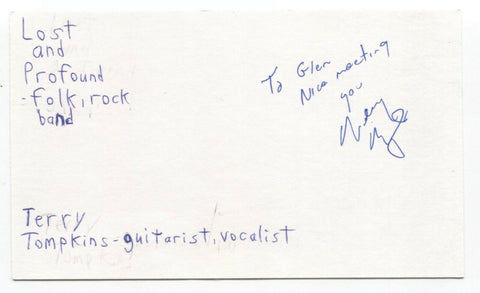 Lost
and
Profound
-folk, rock
band
To Glen
Nice meeting
you
Terry
Tompkins-guitarist, vocalist